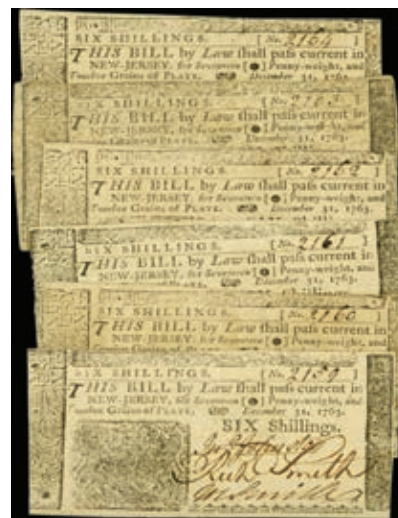 SIX SHILLINGS. [ No. 2164 ]
THIS BILL by Law ſhall paſs current in
NEW-JERSEY, for Seventeen [ ] Penny-weight, and
Twelve Grains of PLATE. December 31, 1763.
SIX SHILLINGS. [ No. 2163 ]
THIS BILL by Law ſhall paſs current in
NEW-JERSEY, for Seventeen [ ] Penny-weight, and
SIX SHILLINGS. [ No. 2162 ]
THIS BILL by Law ſhall paſs current in
NEW-JERSEY, for Seventeen [ ] Penny-weight, and
Twelve Grains of PLATE. December 31, 1763.
SIX SHILLINGS. [ No. 2161 ]
THIS BILL by Law ſhall paſs current in
NEW-JERSEY, for Seventeen [ ] Penny-weight, and
December 31, 1763.
SIX SHILLINGS. [ No. 2160 ]
THIS BILL by Law ſhall paſs current in
NEW-JERSEY, for Seventeen [ ] Penny-weight, and
Twelve Grains of PLATE. December 31, 1763.
SIX SHILLINGS. [ No. 2159 ]
THIS BILL by Law ſhall paſs current in
NEW-JERSEY, for Seventeen [ ] Penny-weight, and
Twelve Grains of PLATE. December 31, 1763.
SIX Shillings.
Rich Smith
Smith